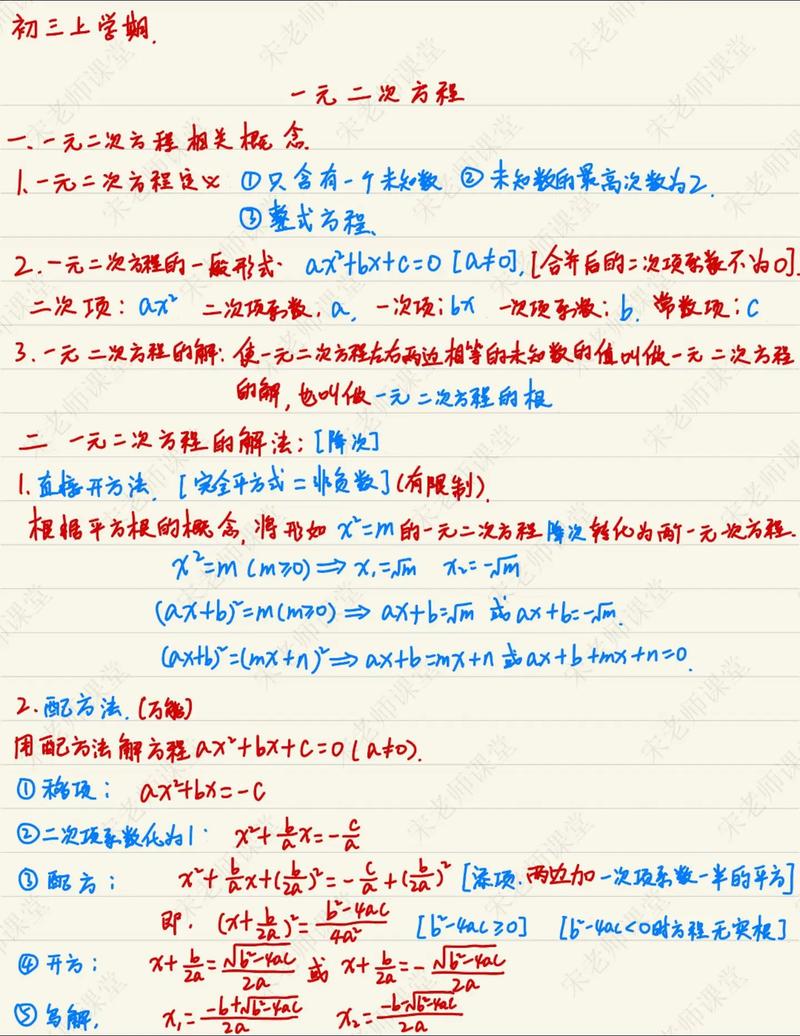 初三上学期.
一元二次方程
一、一元二次方程相关概念.
1.一元二次方程定义 ①只含有一个未知数 ②未知数的最高次数为2.
③整式方程.
2.一元二次方程的一般形式: ax²+bx+c=0 [a≠0],[合并后的二次项系数不为0].
二次项: ax² 二次项系数: a, 一次项: bx 一次项系数: b. 常数项: c
3.一元二次方程的解: 使一元二次方程左右两边相等的未知数的值叫做一元二次方程
的解,也叫做一元二次方程的根
二 一元二次方程的解法: [降次]
1.直接开方法. [完全平方式=非负数](有限制).
根据平方根的概念,将形如 x²=m的一元二次方程降次转化为两个一元一次方程.
x²=m (m≥0)⇒ x₁=√m x₂=-√m
(ax+b)²=m(m≥0) ⇒ ax+b=√m 或ax+b=-√m.
(ax+b)²=(mx+n)²⇒ ax+b=mx+n 或ax+b+mx+n=0.
2.配方法.(万能)
用配方法解方程ax²+bx+c=0(a≠0).
①移项: ax²+bx=-c
②二次项系数化为1: x²+b/a x=-c/a
③配方: x²+b/a x+(b/2a)²=-c/a+(b/2a)² [添项.两边加一次项系数一半的平方]
即. (x+b/2a)²=(b²-4ac)/4a² [b²-4ac≥0] [b²-4ac<0时方程无实根]
④开方: x+b/2a=√(b²-4ac)/2a 或 x+b/2a=-√(b²-4ac)/2a
⑤写解. x₁=(-b+√(b²-4ac))/2a x₂=(-b-√(b²-4ac))/2a
宋老师课堂